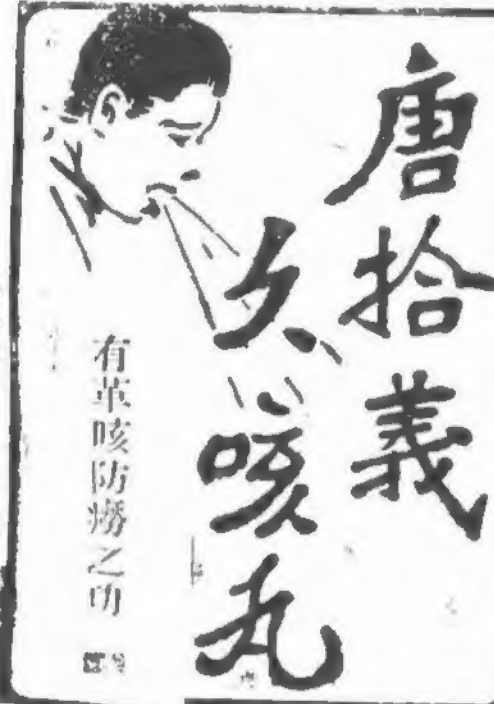 唐拾義
久咳丸
有革咳防癆之功